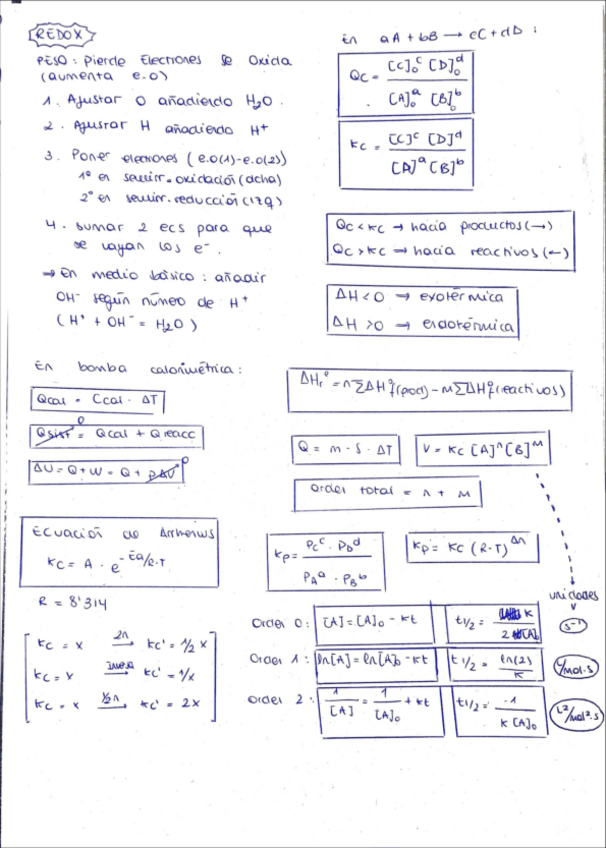 REDOX
PESO: Pierde Electrones Se Oxida
(aumenta e.o)
1. Ajustar O añadiendo H₂O.
2. Ajustar H añadiendo H⁺
3. Poner electrones (e.o(1)-e.o(2))
1º en semirr. oxidación (dcha)
2º en semirr. reducción (izq)
4. sumar 2 ecs para que
se vayan los e⁻.
→ En medio básico: añadir
OH⁻ según número de H⁺
(H⁺ + OH⁻ = H₂O)
En aA + bB → cC + dD :
Qc = [C]₀ᶜ [D]₀ᵈ / [A]₀ᵃ [B]₀ᵇ
Kc = [C]ᶜ [D]ᵈ / [A]ᵃ [B]ᵇ
Qc < Kc → hacia productos (→)
Qc > Kc → hacia reactivos (←)
ΔH < 0 → exotérmica
ΔH > 0 → endotérmica
En bomba calorimétrica:
Qcal = Ccal · ΔT
Qsist = Qcal + Qreacc
0
ΔU = Q + W = Q + pΔV
0
ΔHr° = n∑ΔHf°(prod) - m∑ΔHf°(reactivos)
Q = m · s · ΔT
V = Kc [A]ⁿ [B]ᴹ
Orden total = n + m
Ecuación de Arrhenius
Kc = A · e^-Ea/R·T
R = 8'314
Kp = Pcᶜ · PDᵈ / PAᵃ · PBᵇ
Kp = Kc (R·T)^Δn
Kc = x 2n → Kc' = 1/2 x
Kc = x Inversa → Kc' = 1/x
Kc = x ½n → Kc' = 2x
unidades
Orden 0: [A] = [A]₀ - Kt t1/2 = K / 2 [A]₀ s⁻¹
Orden 1: ln[A] = ln[A]₀ - Kt t1/2 = ln(2) / K L/mol·s
Orden 2: 1/[A] = 1/[A]₀ + Kt t1/2 = 1 / K [A]₀ L²/mol²·s